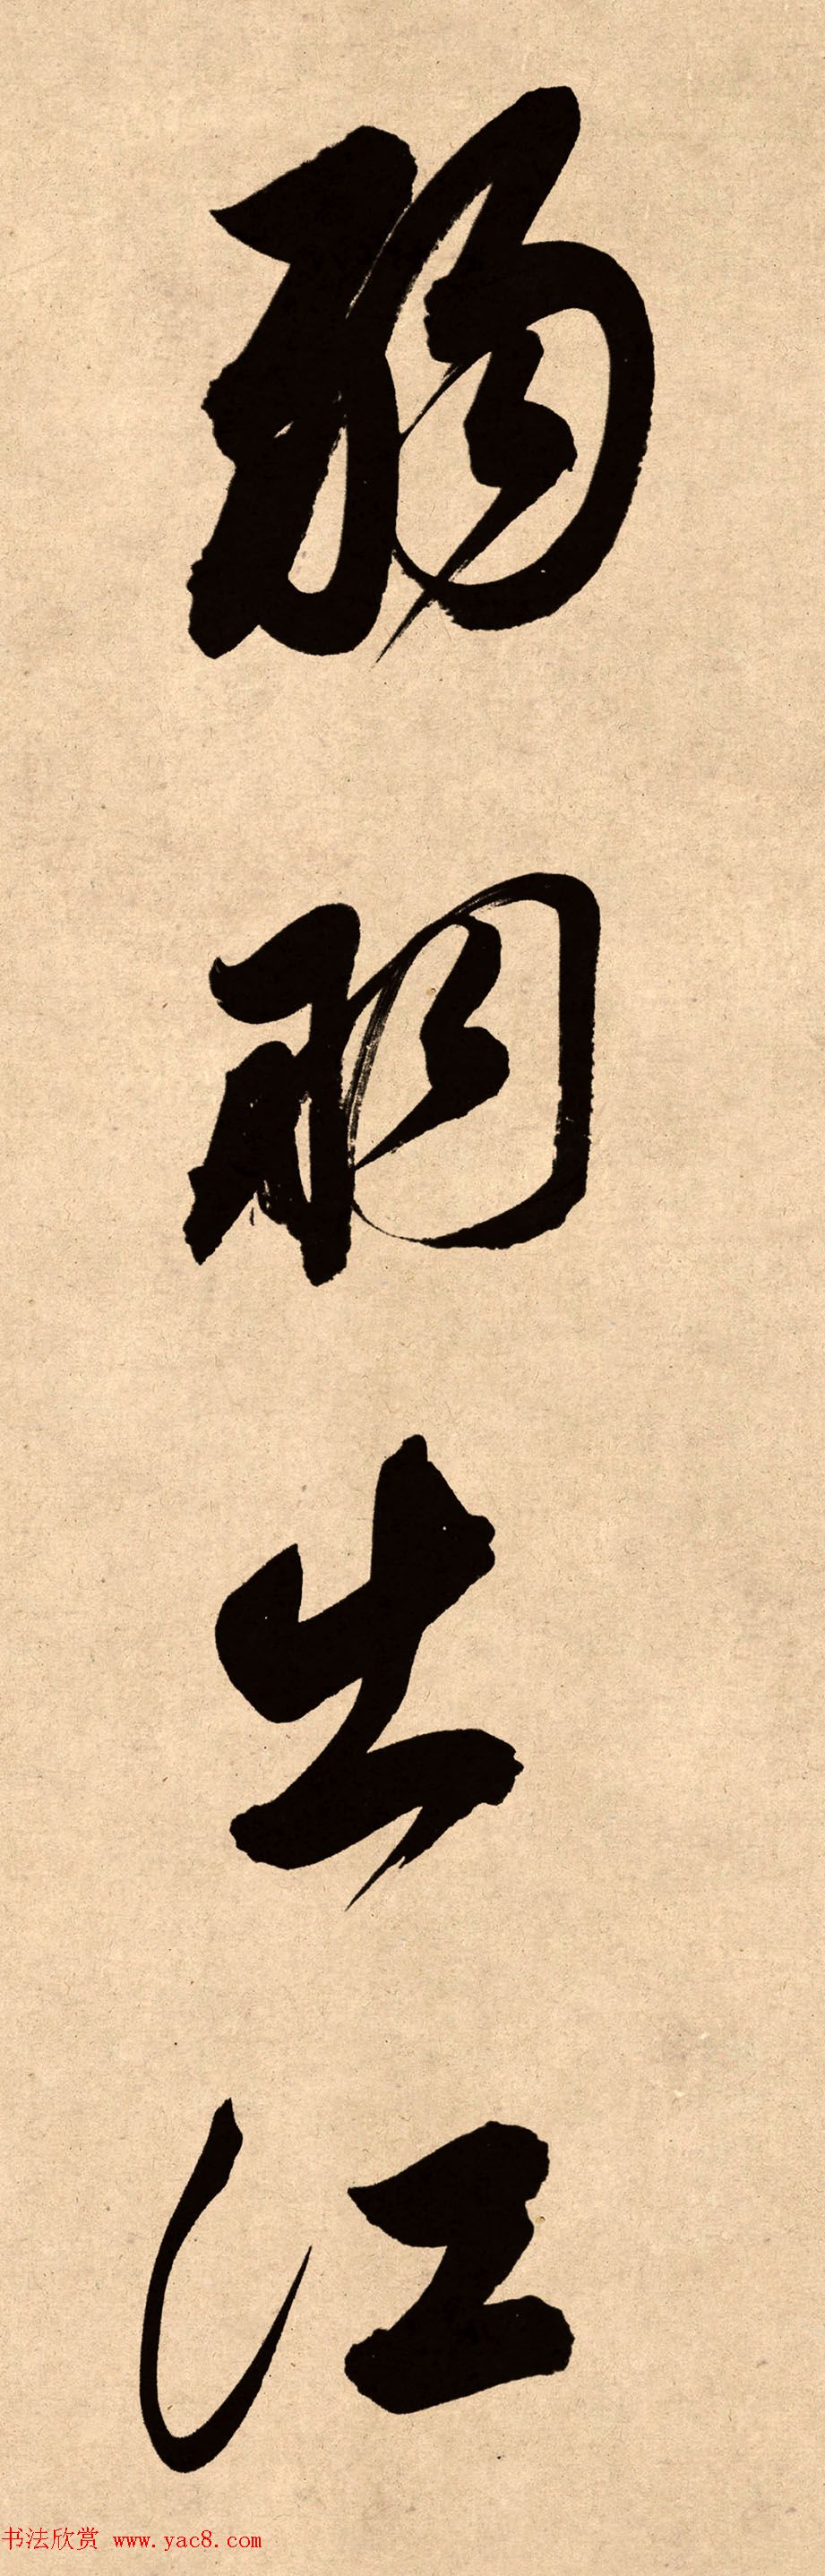 弱
羽
出
江
书法欣赏 www.yac8.com